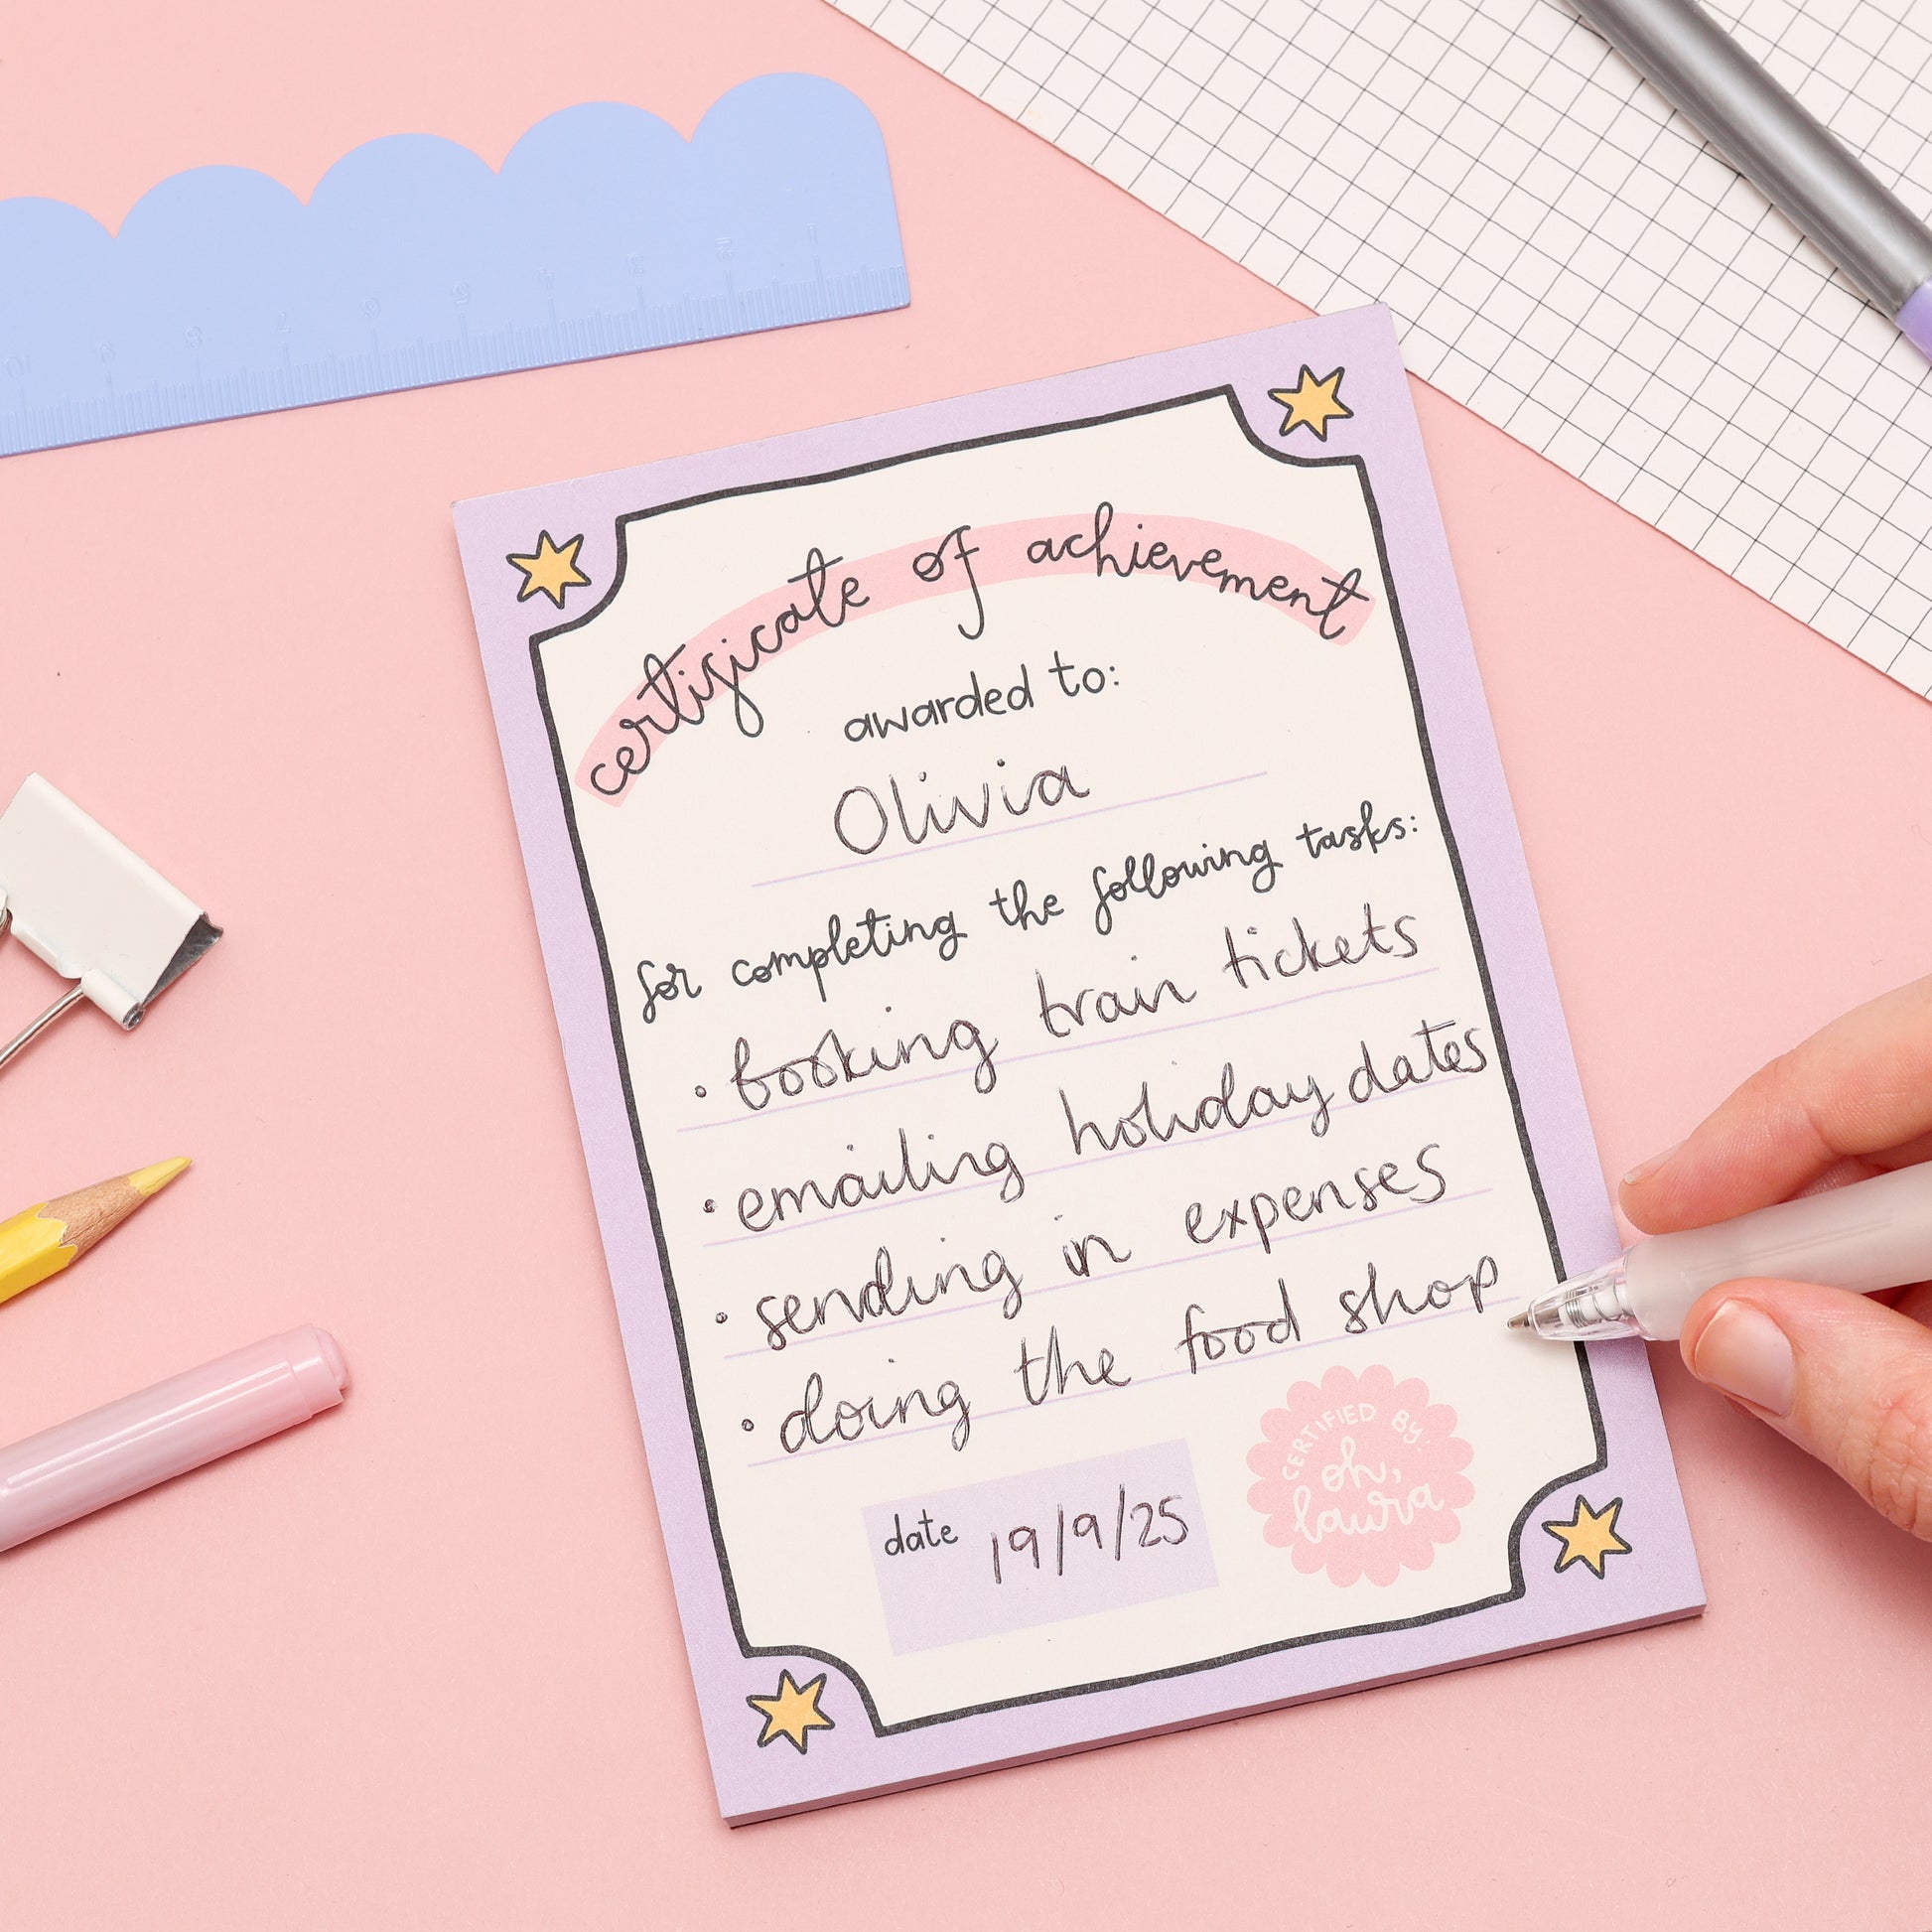 certificate of achievement
awarded to:
Olivia
for completing the following tasks:
• booking train tickets
• emailing holiday dates
• sending in expenses
• doing the food shop
date 19/9/25
CERTIFIED BY:
oh,
laura
1 2 3 4 5 6 7 8 9 10